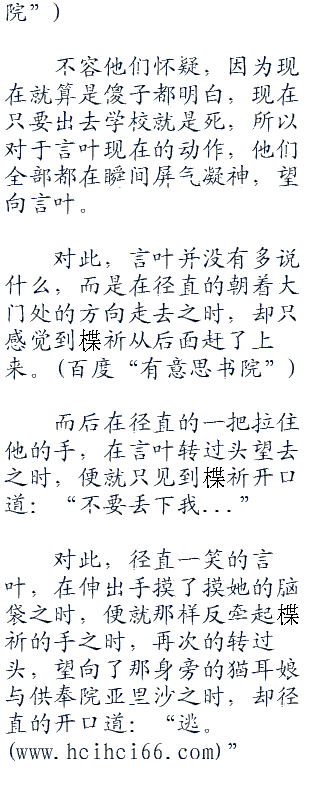 院”)
不容他们怀疑，因为现
在就算是傻子都明白，现在
只要出去学校就是死，所以
对于言叶现在的动作，他们
全部都在瞬间屏气凝神，望
向言叶。
对此，言叶并没有多说
什么，而是在径直的朝着大
门处的方向走去之时，却只
感觉到楪祈从后面赶了上
来。(百度“有意思书院”)
而后在径直的一把拉住
他的手，在言叶转过头望去
之时，便就只见到楪祈开口
道：“不要丢下我...”
对此，径直一笑的言
叶，在伸出手摸了摸她的脑
袋之时，便就那样反牵起楪
祈的手之时，再次的转过
头，望向了那身旁的猫耳娘
与供奉院亚里沙之时，却径
直的开口道：“逃。
(www.hcihci66.com)”